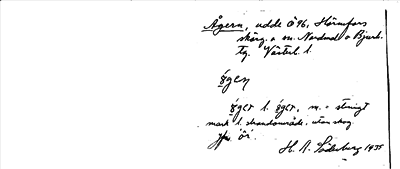 Ågern, udde Ö 96, Hörnefors
skärg. o. sn. Nordmal. o Bjurh.
tg. Västerb. l.
ögen
öger l. öger, m. = stenigt
mark l. strandområde, utan skog.
jfr. öi.
H. A. Söderberg 1935